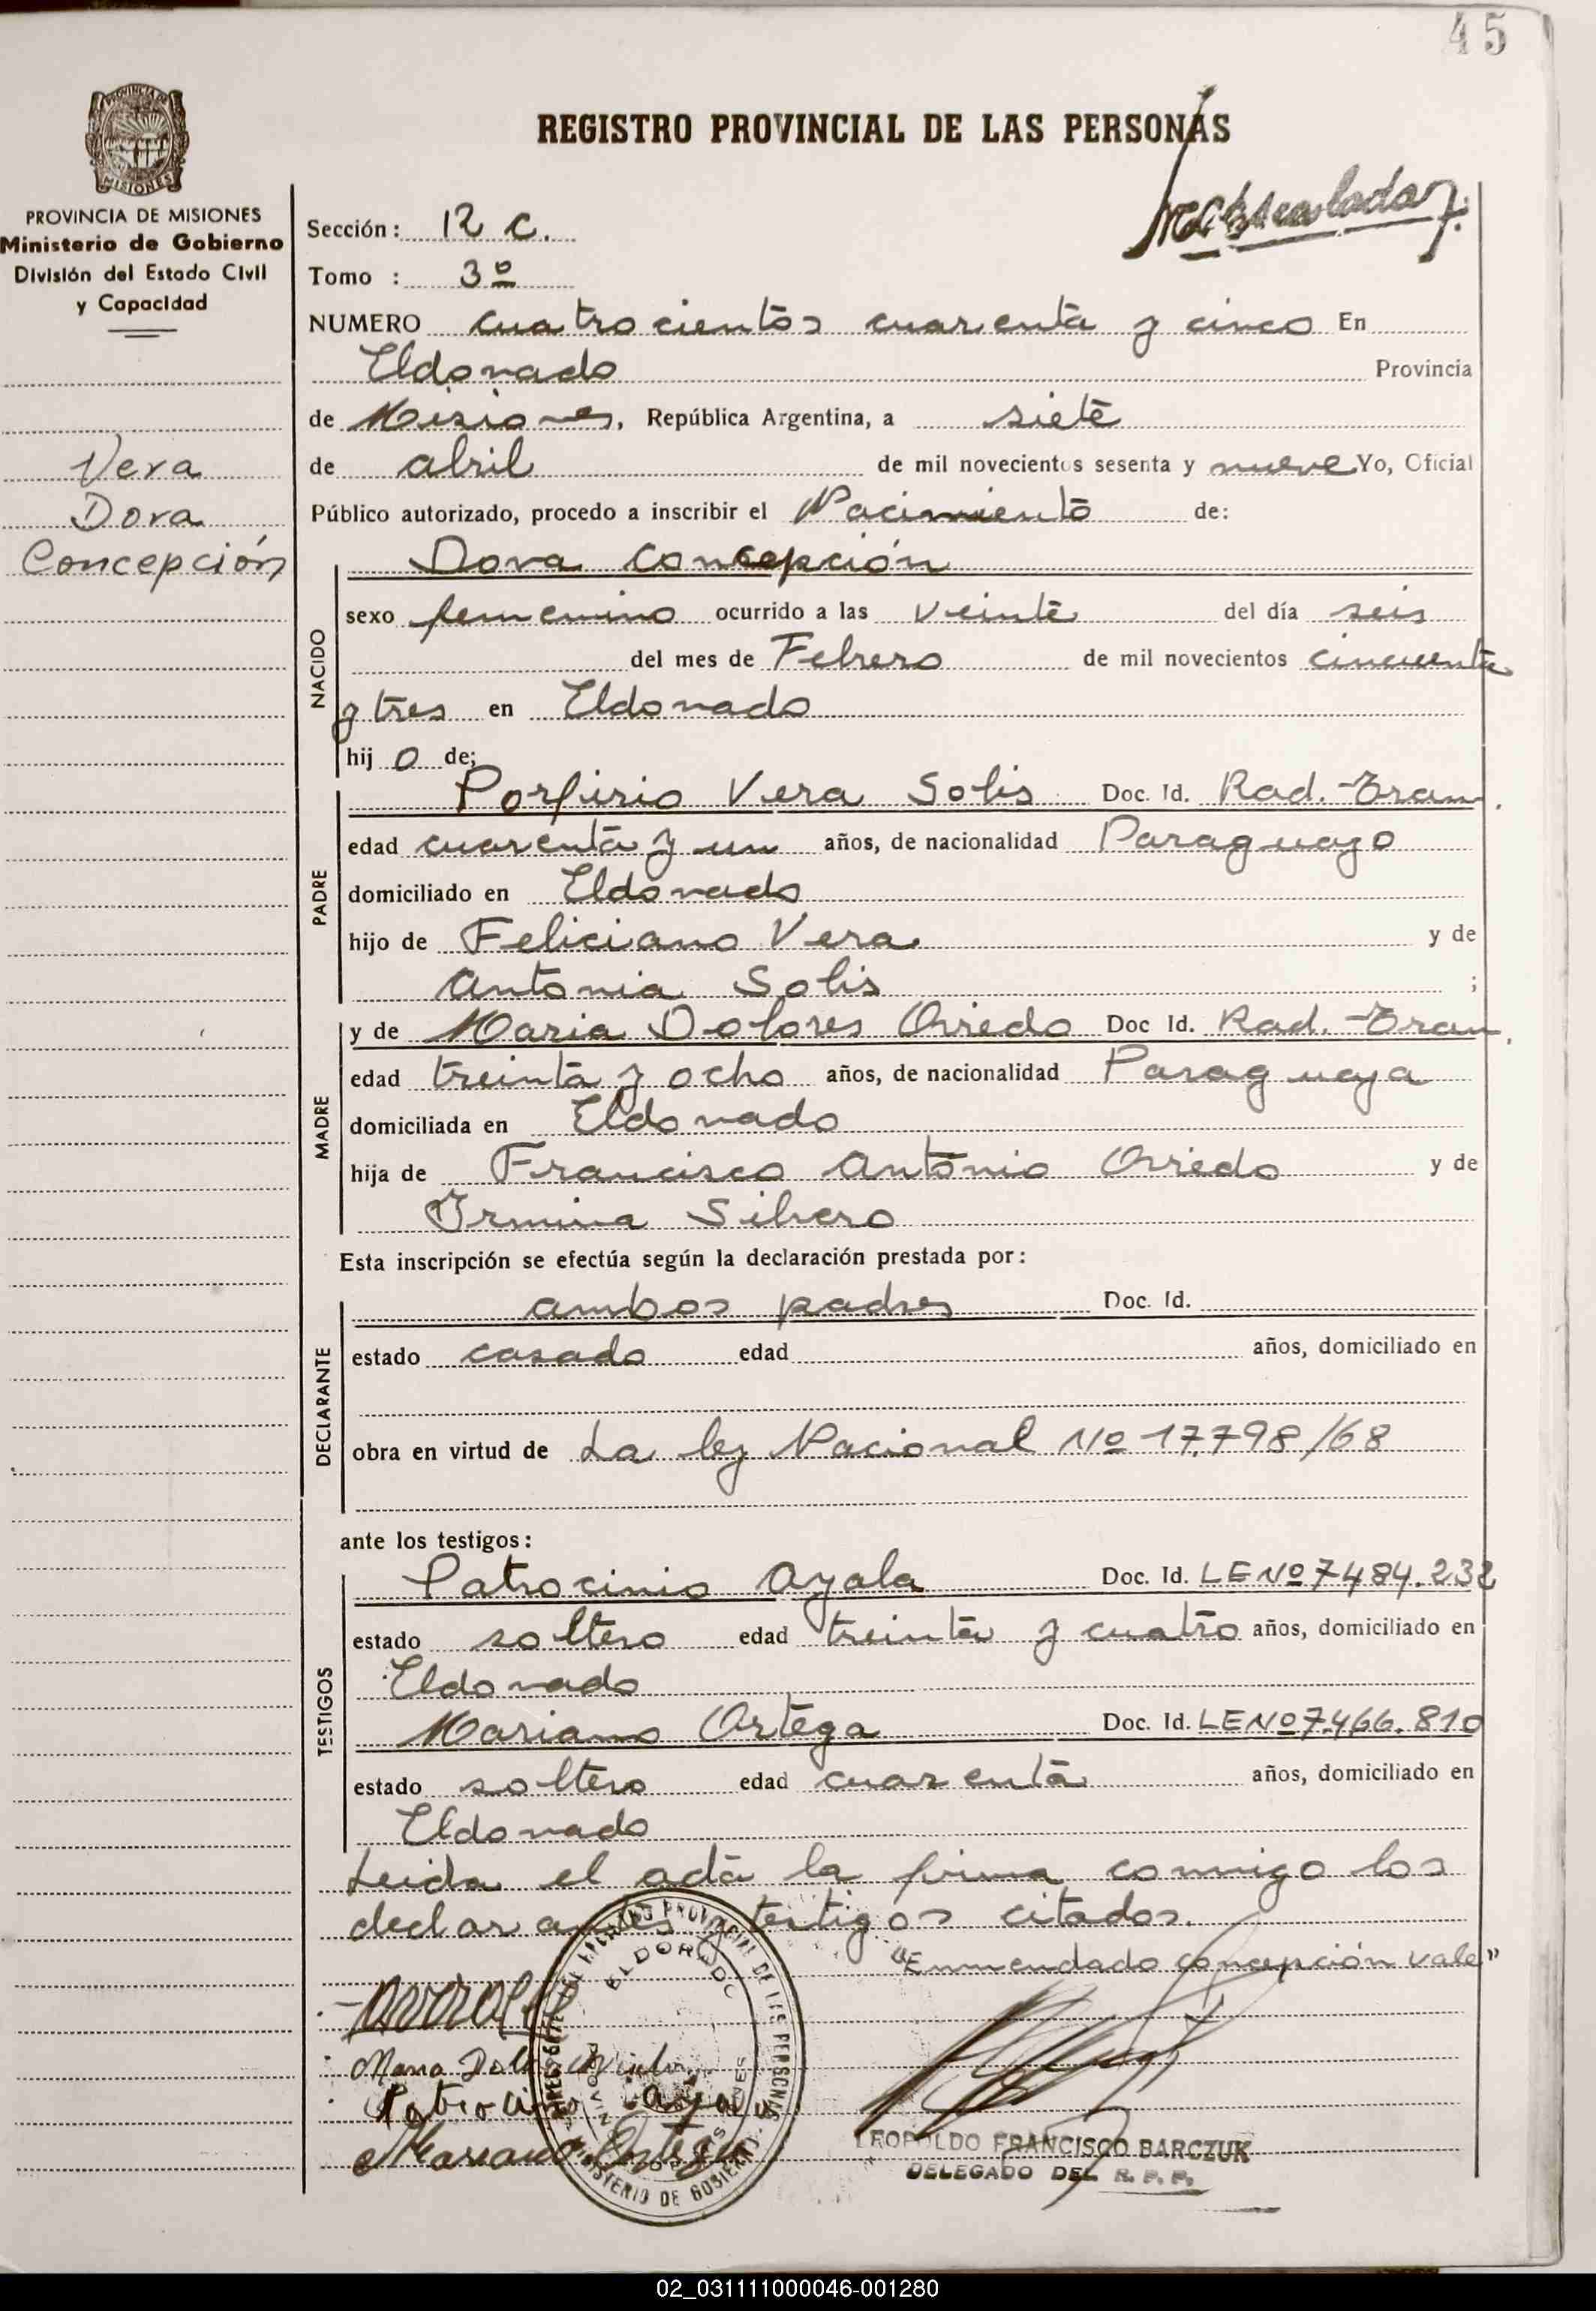 45
REGISTRO PROVINCIAL DE LAS PERSONAS
PROVINCIA DE MISIONES
Ministerio de Gobierno
División del Estado Civil
y Capacidad
Vera
Dora
Concepción
Sección: 12 C.
Tomo : 3º
NUMERO cuatrocientos cuarenta y cinco En
Eldorado Provincia
de Misiones, República Argentina, a siete
de abril de mil novecientos sesenta y nueve Yo, Oficial
Público autorizado, procedo a inscribir el Nacimiento de:
Dora Concepción
NACIDO
sexo femenino ocurrido a las veinte del día seis
del mes de Febrero de mil novecientos cincuenta
y tres en Eldorado
hij o de;
PADRE
Porfirio Vera Solis Doc. Id. Rad.-Tram.
edad cuarenta y un años, de nacionalidad Paraguayo
domiciliado en Eldorado
hijo de Feliciano Vera y de
Antonia Solis ;
MADRE
y de Maria Dolores Oviedo Doc Id. Rad.-Tram.
edad treinta y ocho años, de nacionalidad Paraguaya
domiciliada en Eldorado
hija de Francisco Antonio Oviedo y de
Irmina Silvero
Esta inscripción se efectúa según la declaración prestada por:
DECLARANTE
ambos padres Doc. Id.
estado casado edad años, domiciliado en
obra en virtud de La ley Nacional Nº 17.798/68
ante los testigos:
TESTIGOS
Patrocinio Ayala Doc. Id. LE Nº 7484.232
estado soltero edad treinta y cuatro años, domiciliado en
Eldorado
Mariano Ortega Doc. Id. LE Nº 7.466.810
estado soltero edad cuarenta años, domiciliado en
Eldorado
Leida el acta la firma conmigo los
declarantes y testigos citados.
"Enmendado concepción vale"
Maria Dol
Patrocinio Ayala
Mariano Ortega
ELDORADO
LEOPOLDO FRANCISCO BARCZUK
DELEGADO DEL R. P. P.
02_031111000046-001280